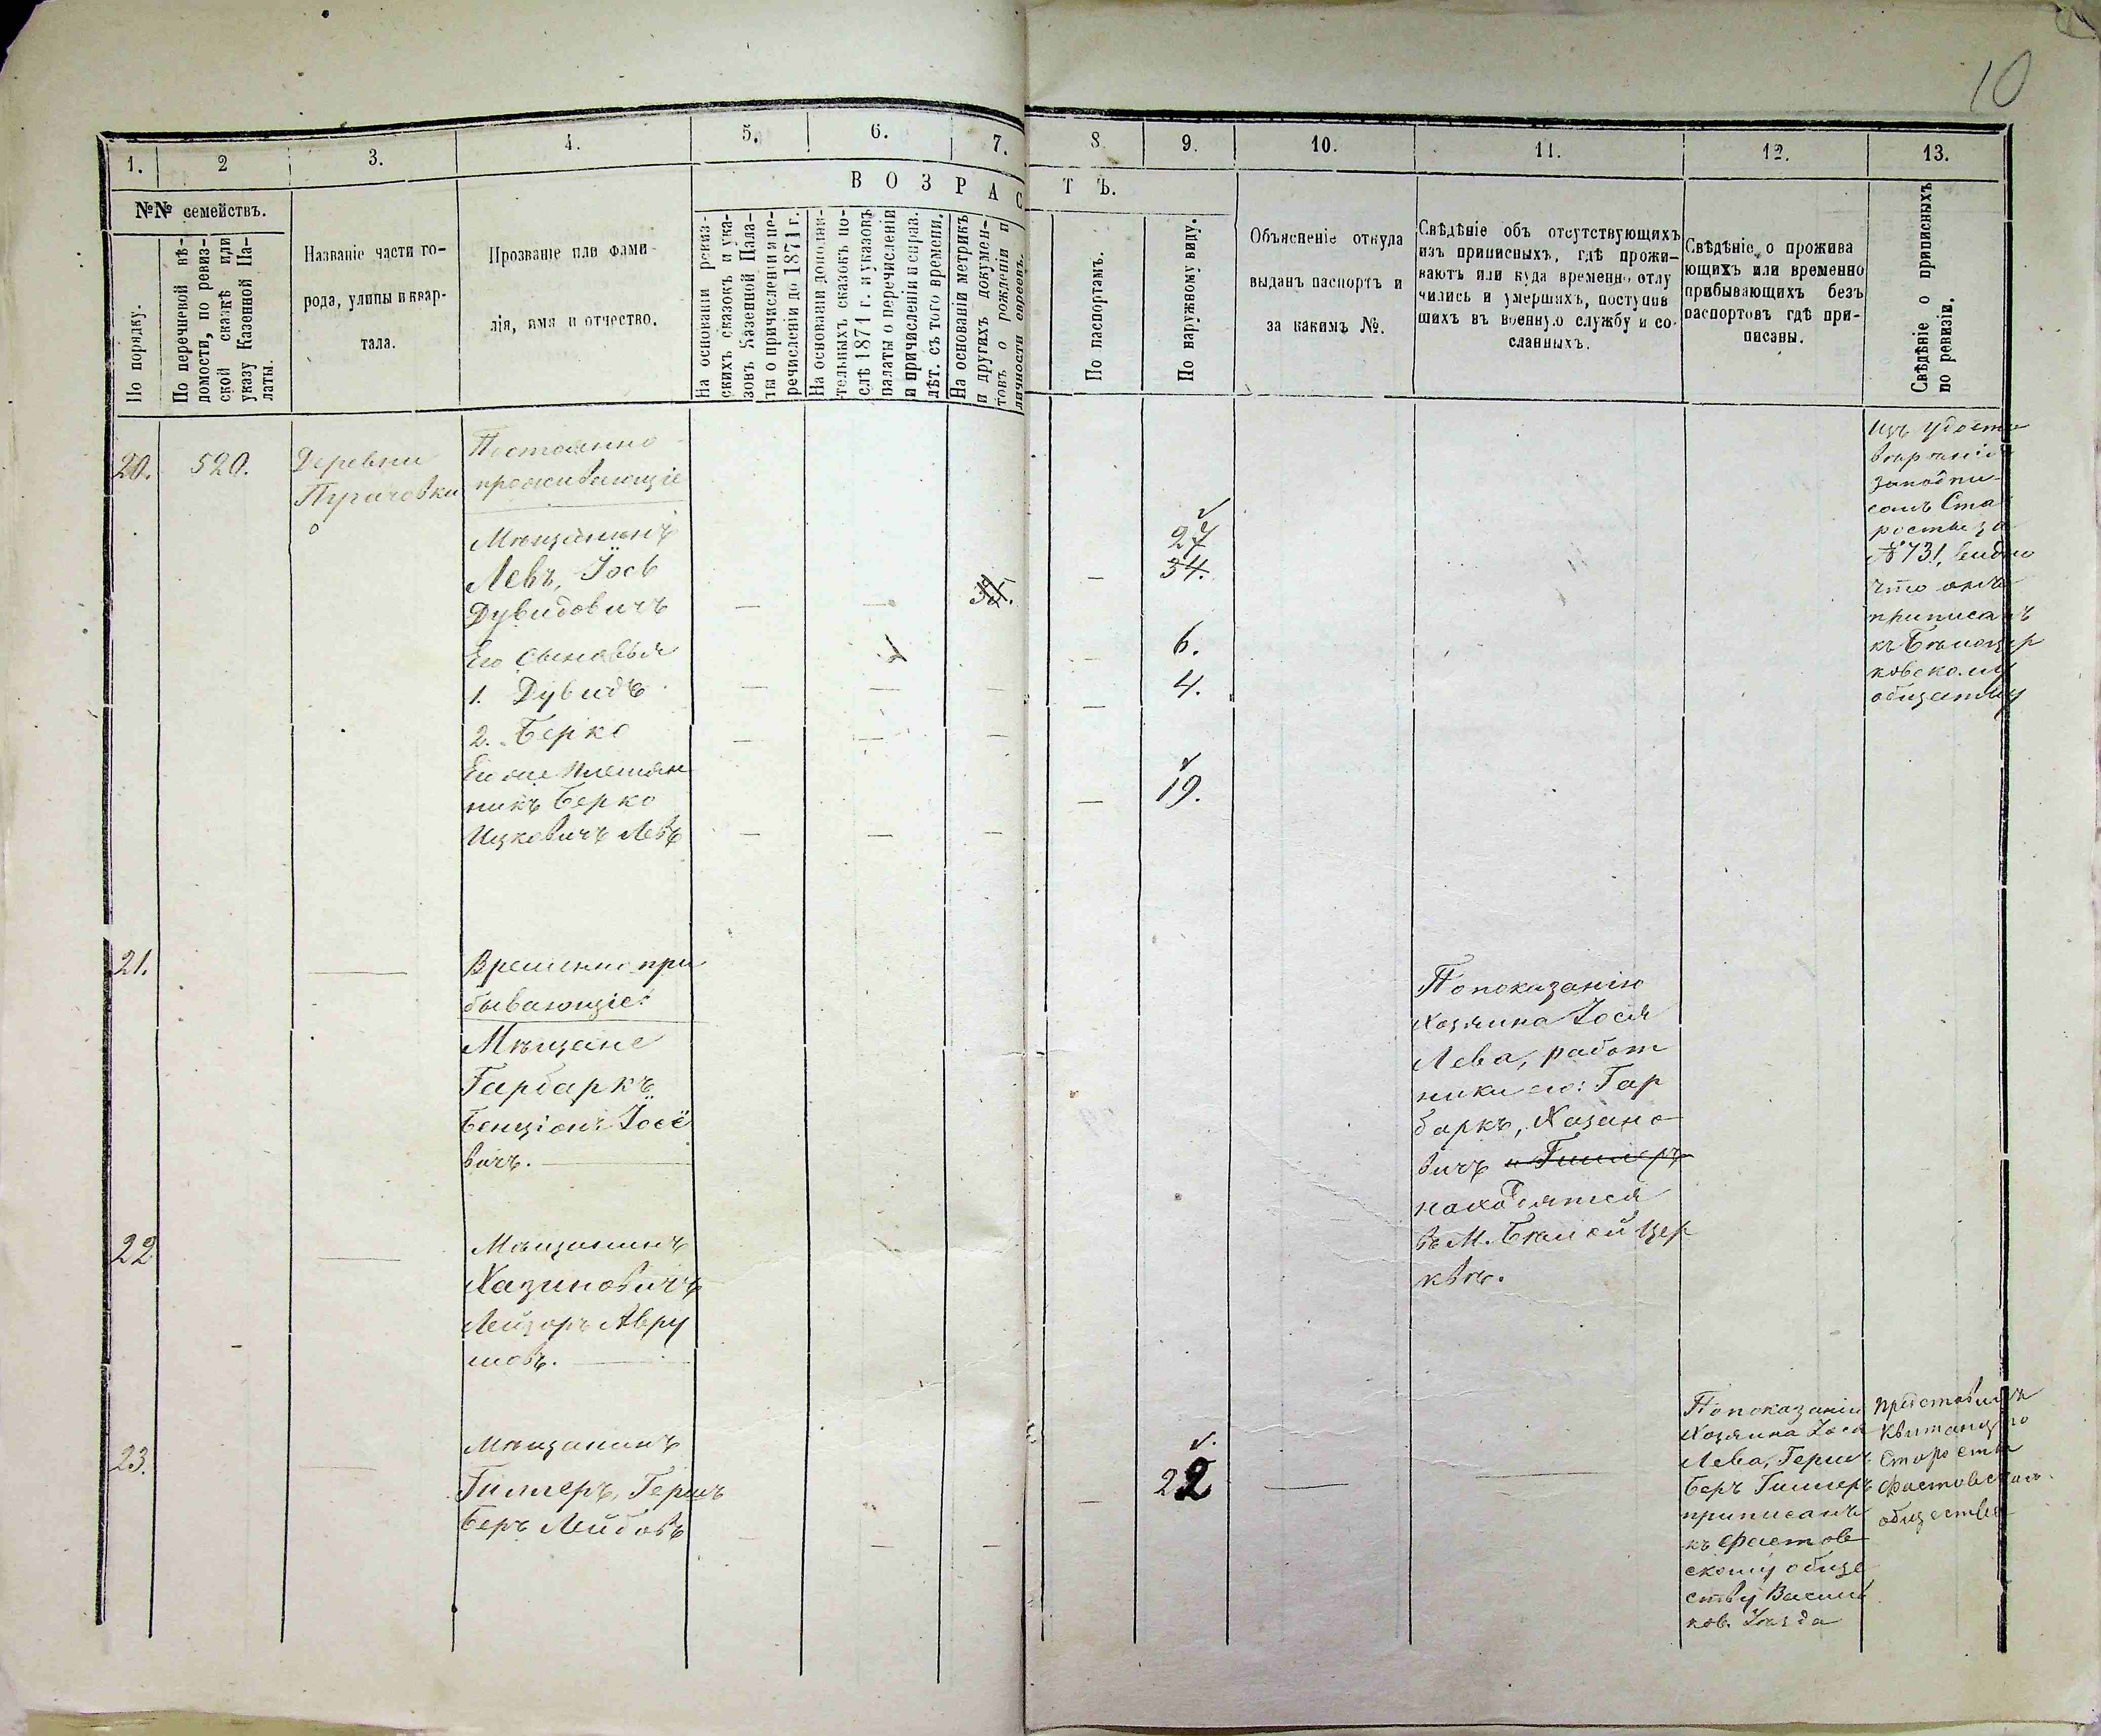 10
1.
2
3.
4.
5.
6.
7.
8.
9.
10.
11.
12.
13.
В О З Р А С Т Ъ.
№№ семействъ.
По порядку.
По перечневой вѣ-
домости, по ревиз-
ской сказкѣ или
указу Казенной Па-
латы.
Названіе части го-
рода, улицы и квар-
тала.
Прозваніе или фами-
лія, имя и отчество.
На основаніи ревиз-
скихъ сказокъ и ука-
зовъ Казенной Пала-
ты о причисленіи и пе-
речисленіи до 1871 г.
На основаніи дополни-
тельныхъ сказокъ по-
слѣ 1871 г. и указовъ
палаты о перечисленіи
и причисленіи и справ.
лѣт. съ того времени.
На основаніи метрикъ
и другихъ докумен-
товъ о рожденіи и
личности евреевъ.
По паспортамъ.
По наружному виду.
Объясненіе откуда
выданъ паспортъ и
за какимъ №.
Свѣдѣніе объ отсутствующихъ
изъ приписныхъ, гдѣ прожи-
ваютъ или куда временно отлу
чились и умершихъ, поступив
шихъ въ военную службу и со-
сланныхъ.
Свѣдѣніе о прожива
ющихъ или временно
прибывающихъ безъ
паспортовъ гдѣ при-
писаны.
Свѣдѣніе о приписныхъ
по ревизіи.
20.
520.
Деревни
Пугачовки
Постоянно
проживающіе
Мѣщанинъ
Левъ, Іось
Дувидовичъ
Его сыновья
1. Дувидъ
2. Берко
Его же племян
никъ Берко
Ицковичъ Левъ
27
34.
6.
4.
19.
Изъ удосто
вѣренія
за подпи-
сомъ Ста
росты за
№ 731, видно
что онъ
приписанъ
къ Бѣлоцер
ковскому
обществу
21.
Временно при
бывающіе:
Мѣщане
Гарбаркъ
Бенціонъ Іосё
вичъ.
По показанію
Хозяина Іося
Лева, работ
ники его: Гар
баркъ, Хазано
вичъ и Гиммеръ
находятся
въ М. Бѣлой Цер
квѣ.
22
Мѣщанинъ
Хазиновичъ
Лейзоръ Авру
мовъ.
23.
Мѣщанинъ
Гиммеръ, Гершъ
Беръ Лейбовъ
22
По показанію
Хозяина Іося
Лева, Гершъ
Беръ Гиммеръ
приписанъ
къ Фастов
скому обще
ству Василь
ков. Уѣзда
Представилъ
квитанцію
Старосты
Фастовскаго
общества